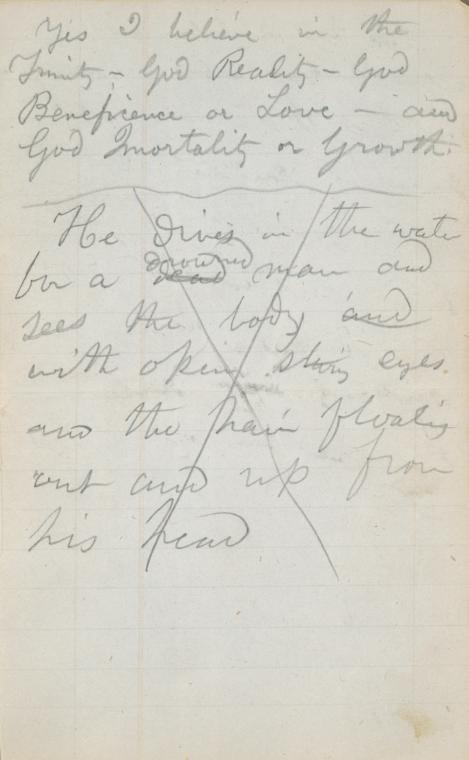 Yes I believe in the
Trinity – God Reality – God
Beneficence or Love – and
God Imortality or Growth.
He dives in the water
for a dead drowned man and
sees the body and
with open staring eyes.
and the hair floating
out and up from
his head